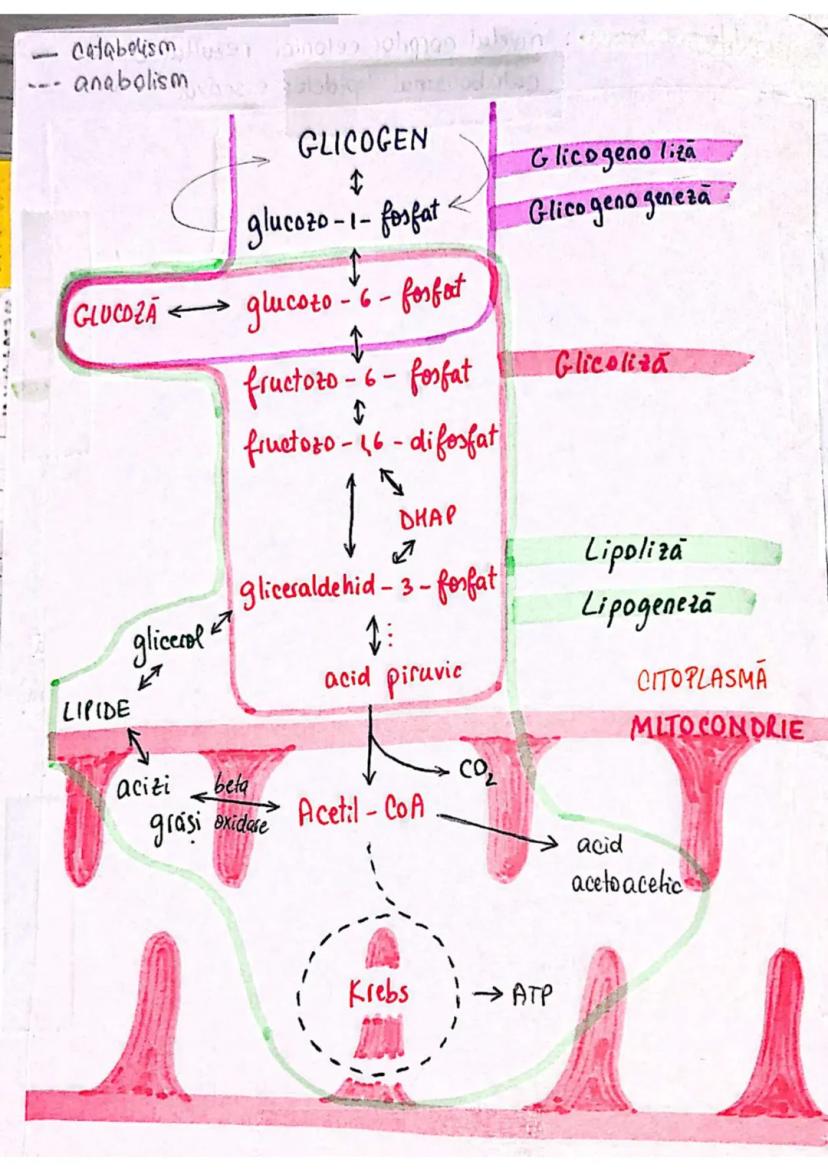 — catabolism
--- anabolism
GLICOGEN
Glicogenoliză
glucozo-1-fosfat
Glicogenogeneză
GLUCOZĂ ↔ glucozo-6-fosfat
fructozo-6-fosfat
Glicoliză
fructozo-1,6-difosfat
DHAP
Lipoliză
gliceraldehid-3-fosfat
Lipogeneză
glicerol
acid piruvic
CITOPLASMĂ
LIPIDE
MITOCONDRIE
CO2
acizi
grași
beta
oxidare
Acetil-CoA
acid
acetoacetic
Krebs → ATP